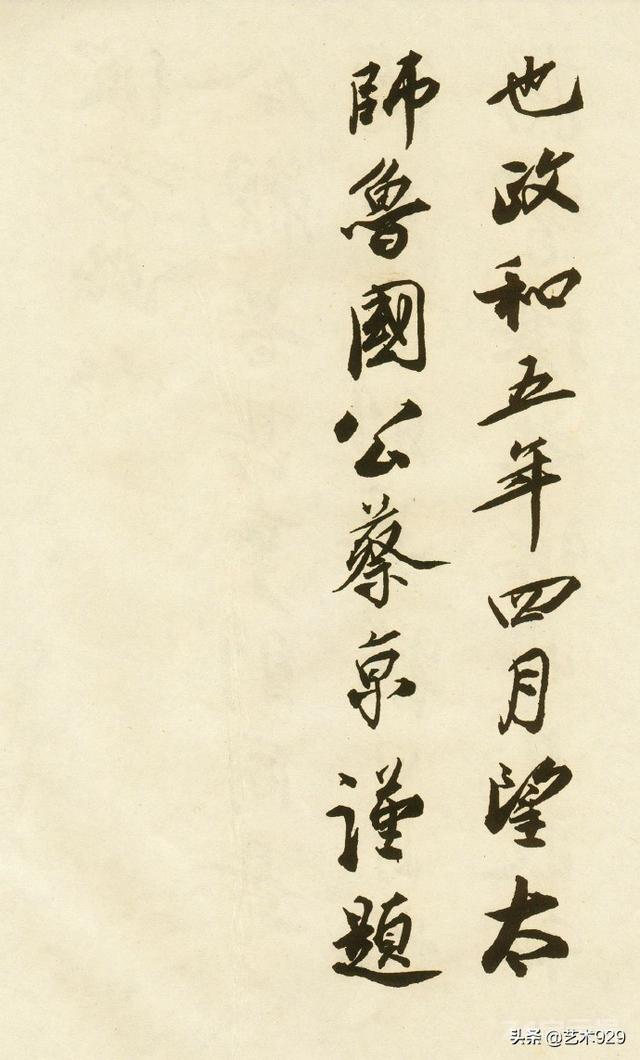 也政和五年四月望太
師魯國公蔡京謹題
头条 @艺术929